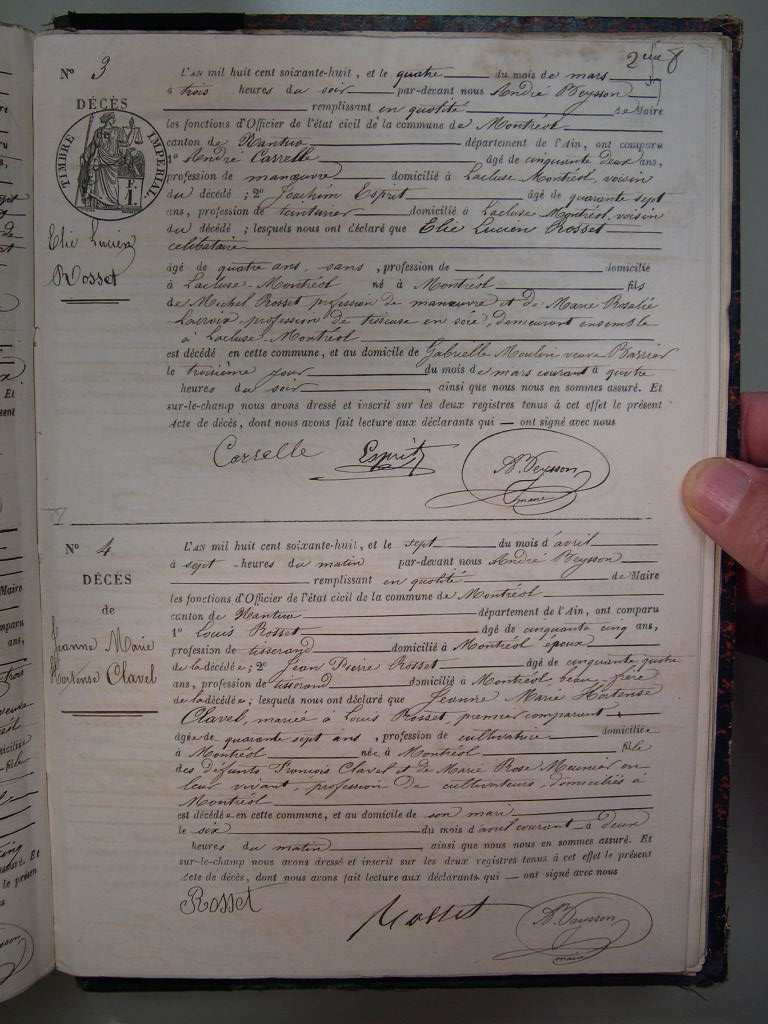 8
N° 3
DÉCÈS
TIMBRE IMPÉRIAL
F.
1.
Elie Lucien
Rosset
L'AN mil huit cent soixante-huit, et le quatre du mois de mars
à trois heures du soir par-devant nous André Beysson
remplissant en qualité de Maire
les fonctions d'Officier de l'état civil de la commune de Montréal
canton de Nantua département de l'Ain, ont comparu
1° André Carrelle âgé de cinquante deux ans,
profession de manœuvre domicilié à Lacluse Montréal, voisin
du décédé ; 2° Joachim Esprit âgé de quarante sept
ans, profession de teinturier domicilié à Lacluse Montréal, voisin
du décédé ; lesquels nous ont déclaré que Elie Lucien Rosset
celibataire
âgé de quatre ans, sans, profession de domicilié
à Lacluse-Montréal né à Montréal fils
de Michel Rosset profession de manœuvre et de Marie Rosalie
Lacroix profession de tisseuse en soie, demeurant ensemble
à Lacluse-Montréal
est décédé en cette commune, et au domicile de Gabrielle Moulin veuve
le troisième jour du mois de mars courant à quatre
heures du soir, ainsi que nous nous en sommes assuré. Et
sur-le-champ nous avons dressé et inscrit sur les deux registres tenus à cet effet le présent
Acte de décès, dont nous avons fait lecture aux déclarants qui — ont signé avec nous
Carrelle Esprit A. Beysson
maire
N° 4
DÉCÈS
de
Jeanne Marie
Hortense Clavel
L'AN mil huit cent soixante-huit, et le sept du mois d'avril
à sept heures du matin par-devant nous André Beysson
remplissant en qualité de Maire
les fonctions d'Officier de l'état civil de la commune de Montréal
canton de Nantua département de l'Ain, ont comparu
1° Louis Rosset âgé de cinquante cinq ans,
profession de tisserand domicilié à Montréal époux
de la décédée ; 2° Jean Pierre Rosset âgé de cinquante quatre
ans, profession de tisserand domicilié à Montréal beau frère
de la décédée ; lesquels nous ont déclaré que Jeanne Marie Hortense
Clavel, mariée à Louis Rosset, premier comparant
âgée de quarante sept ans, profession de cultivatrice domiciliée
à Montréal née à Montréal fille
des défunts François Clavel et de Marie Rose Meunier en
leur vivant, profession de cultivateurs, domiciliés à
Montréal
est décédée en cette commune, et au domicile de son mari
le six du mois d'avril courant à deux
heures du matin, ainsi que nous nous en sommes assuré. Et
sur-le-champ nous avons dressé et inscrit sur les deux registres tenus à cet effet le présent
Acte de décès, dont nous avons fait lecture aux déclarants qui — ont signé avec nous
Rosset Rosset A. Beysson
maire